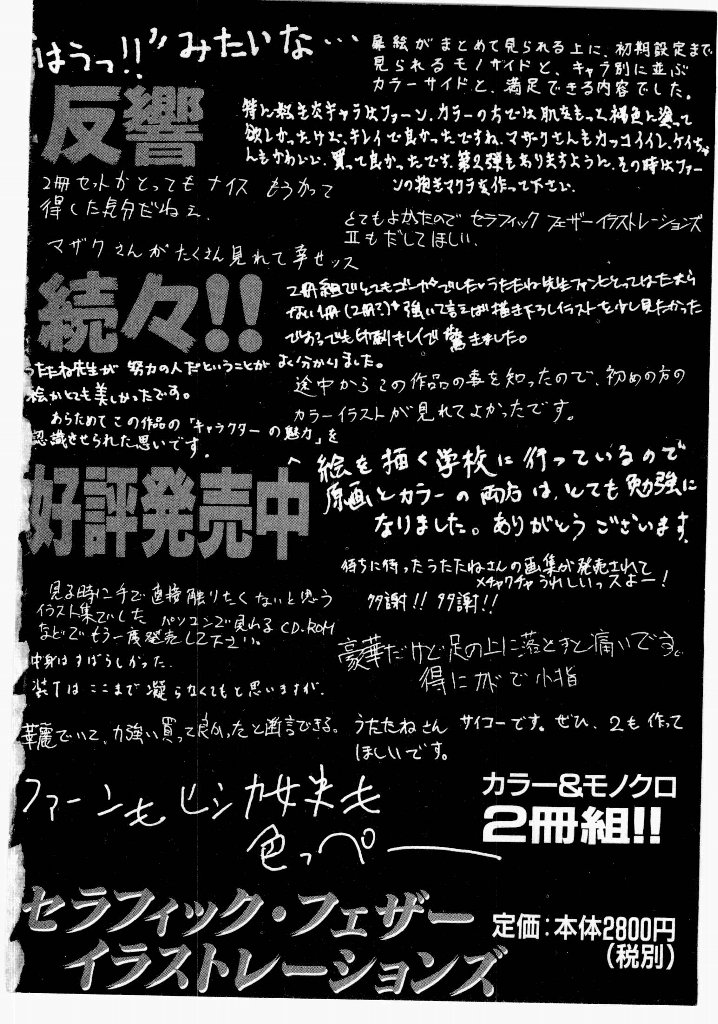 "はうっ!!"みたいな…
扉絵がまとめて見られる上に、初期設定まで
見られるモノサイドと、キャラ別に並ぶ
カラーサイドと、満足できる内容でした。
反響
特に好きなキャラはファーン、カラーの方では肌をもっと褐色に塗って
欲しかったけど、キレイで良かったですね、マザクさんもカッコイイし、ケイちゃ
んもかわいい、買って良かったです。第2弾もありますように、その時はファー
ンの抱きマクラを作って下さい。
2冊セットがとってもナイス もうかって
得した気分だねぇ、
とてもよかたので セラフィック フェザーイラストレーションズ
IIもだしてほしい、
マザクさんがたくさん見れて幸せッス
続々!!
2冊組でとてもゴージャスでした。うたたね先生ファンにとってはたまら
ない1冊(2冊?)強いて言えば描き下ろしイラストを少し見たかった
でも印刷キレイで驚きました。
うたたね先生が 努力の人だということが よく分かりました。
絵がとても美しかったです。
途中からこの作品の事を知ったので、初めの方の
カラーイラストが見れてよかったです。
あらためてこの作品の「キャラクターの魅力」を
認識させられた思いです。
好評発売中
絵を描く学校に行っているので
原画とカラーの両方は、とても勉強に
なりました。ありがとうございます。
待ちに待ったうたたねさんの画集が発売されて
メチャクチャうれしいっスよー!
多謝!! 多謝!!
見る時に手で直接触りたくないと思う
イラスト集でした パソコンで見れるCD-ROM
などでもう一度発売して下さい。
中身はすばらしかった、
装丁はここまで凝らなくてもと思いますが、
豪華だけど足の上に落とすと痛いです。
特にカドで小指
華麗でいて、力強い買って良かったと断言できる。
うたたねさん サイコーです。ぜひ、2も作って
ほしいです。
ファーンも ヒシカ女史も
色っぺー
カラー&モノクロ
2冊組!!
セラフィック・フェザー
イラストレーションズ
定価:本体2800円
(税別)